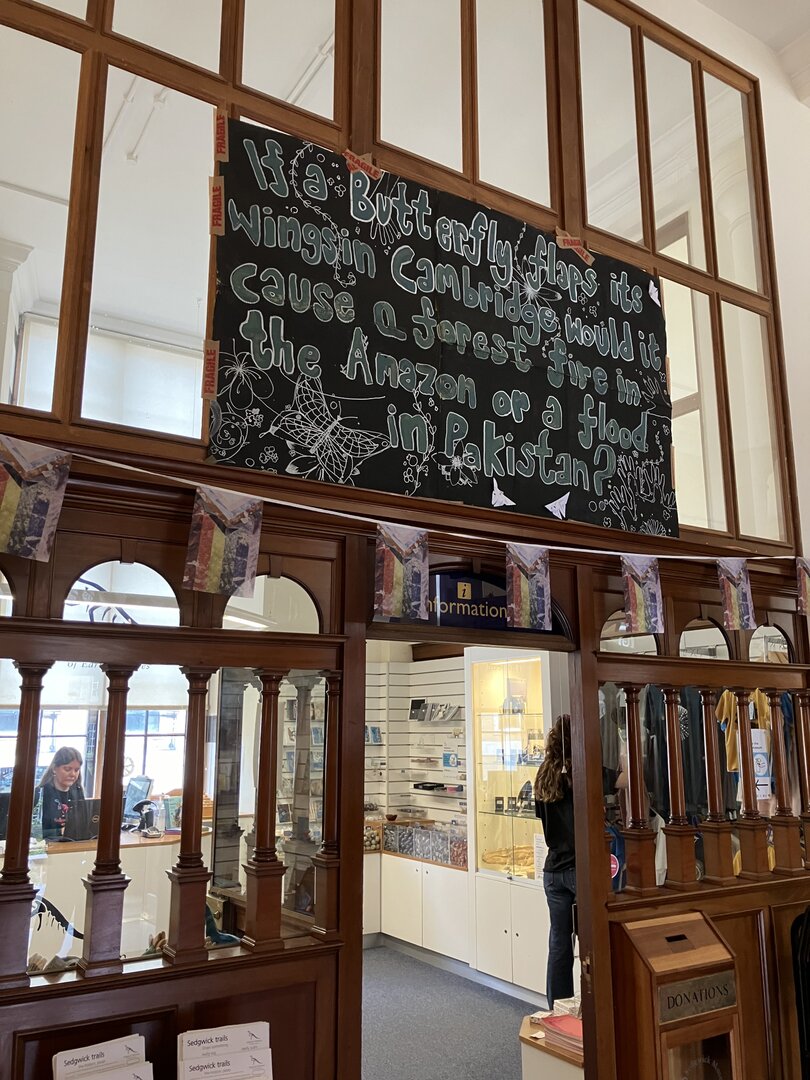 FRAGILE
FRAGILE
FRAGILE
FRAGILE
FRAGILE
If a Butterfly flaps its
wings in Cambridge would it
cause a forest fire in
the Amazon or a flood
in Pakistan?
i
information
DONATIONS
Sedgwick trails
Sedgwick trails
Sedgwick trails
Sedgwick trails